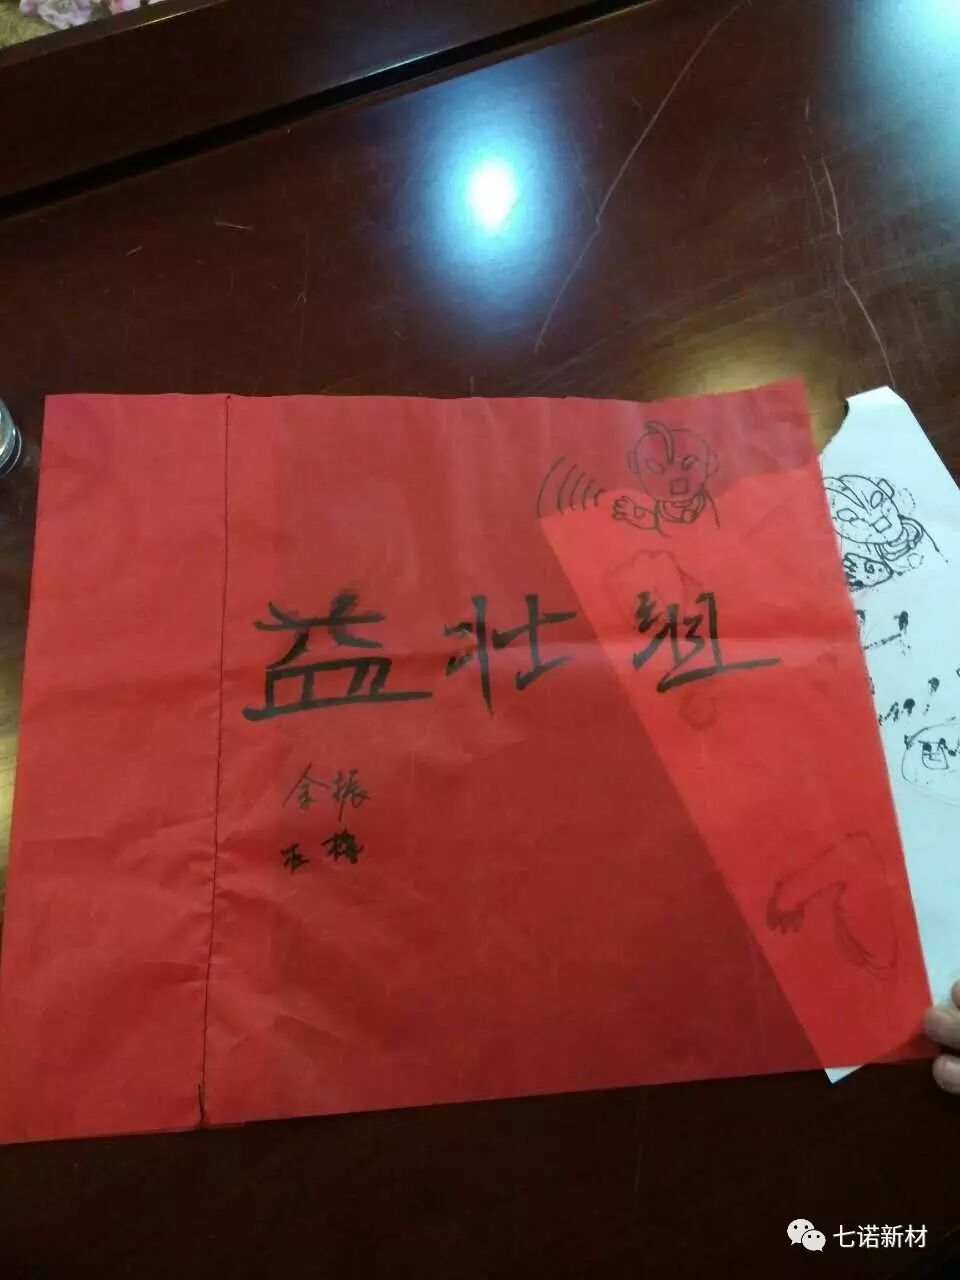 益壮组
余振
七诺新材